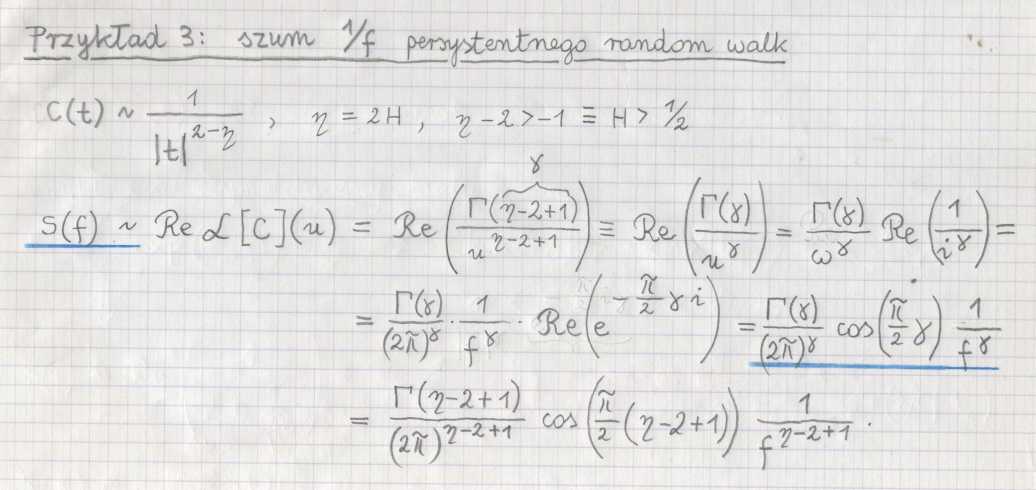 Przykład 3: szum 1/f persystentnego random walk
C(t) ~ 1/|t|^{2-η} , η = 2H , η-2 > -1 ≡ H > 1/2
S(f) ~ Re ℒ[C](u) = Re(Γ(η-2+1)/u^{η-2+1}) ≡ Re(Γ(γ)/u^γ) = Γ(γ)/ω^γ Re(1/i^γ) =
= Γ(γ)/(2π)^γ · 1/f^γ · Re(e^{-π/2 γ i}) = Γ(γ)/(2π)^γ cos(π/2 γ) 1/f^γ
= Γ(η-2+1)/(2π)^{η-2+1} cos(π/2 (η-2+1)) 1/f^{η-2+1} .